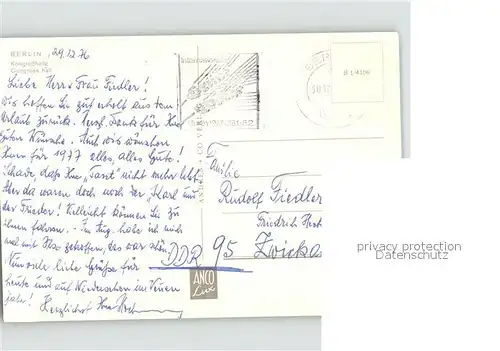 BERLIN
Kongreßhalle
29.12.76
Liebe Herr + Frau Fiedler!
Wir hoffen Sie gut erholt aus dem
Urlaub zurück. Herzl. Dank für Ihre
guten Wünsche. Auch wir wünschen
Ihnen für 1977 alles, alles Gute!
Schade, daß Ihre "Tante" nicht mehr lebt.
Aber da waren doch noch der "Karl und
der Frieder! Vielleicht können Sie zu
ihnen fahren. - Im Aug. habe ich mich
mal mit Ilse getroffen, das war schön.
Nun viele liebe Grüße für
heute und auf Wiedersehen im Neuen
Jahr! Herzlichst Ihre
ANDRES + CO VERLAG
ANCO
Lux
B 1/4106
Familie
Rudolf Fiedler
Friedrich
DDR 95 Zwickau
privacy protection
Datenschutz